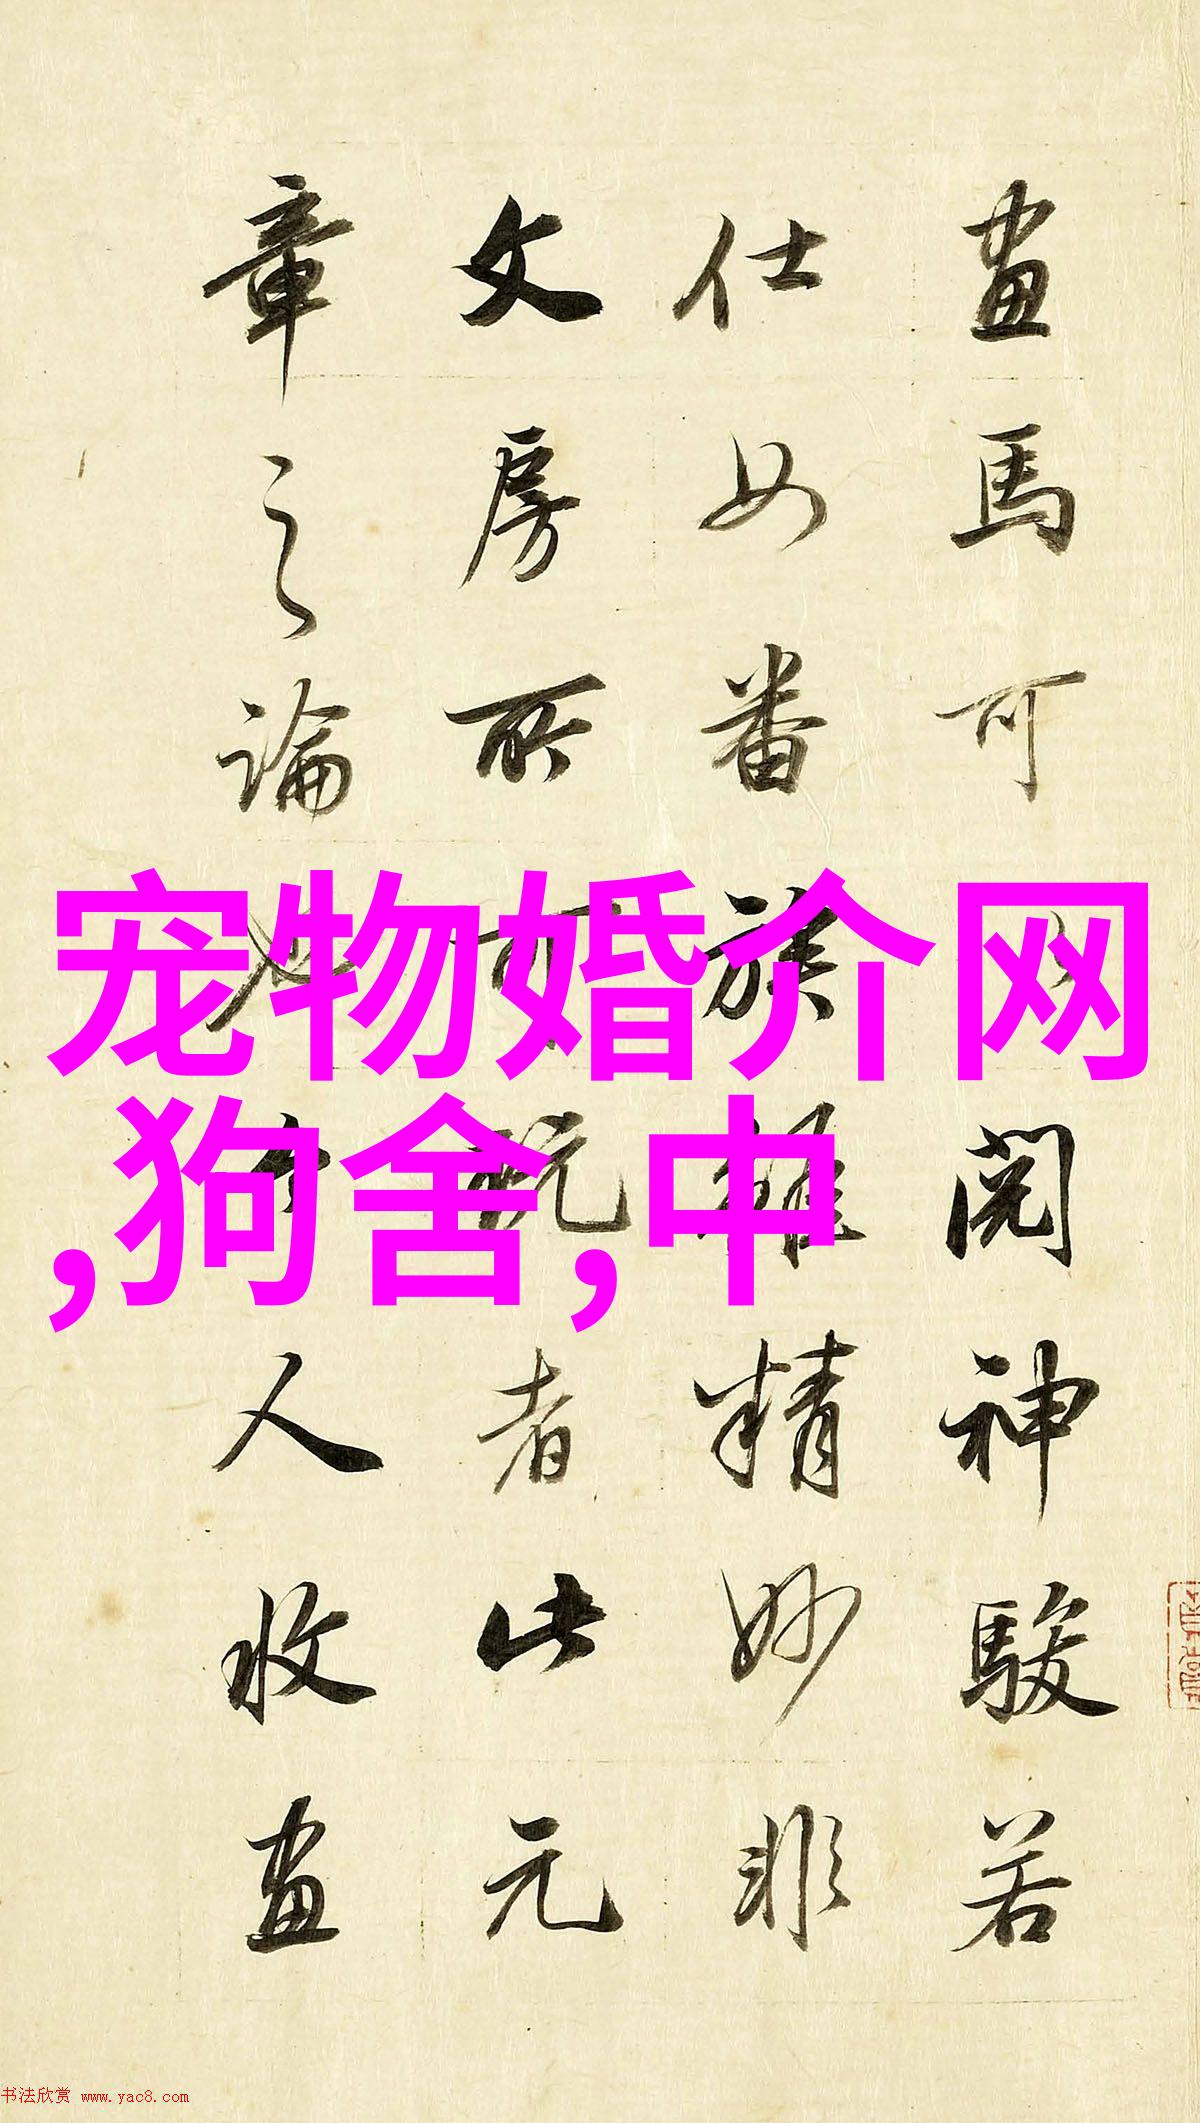 宠物婚介网
,狗舍,中
畫馬可以閱神駿若
仕女番族雖精妙非
文房所可玩者此元
章之論也今人收畫
书法欣赏 www.yac8.com